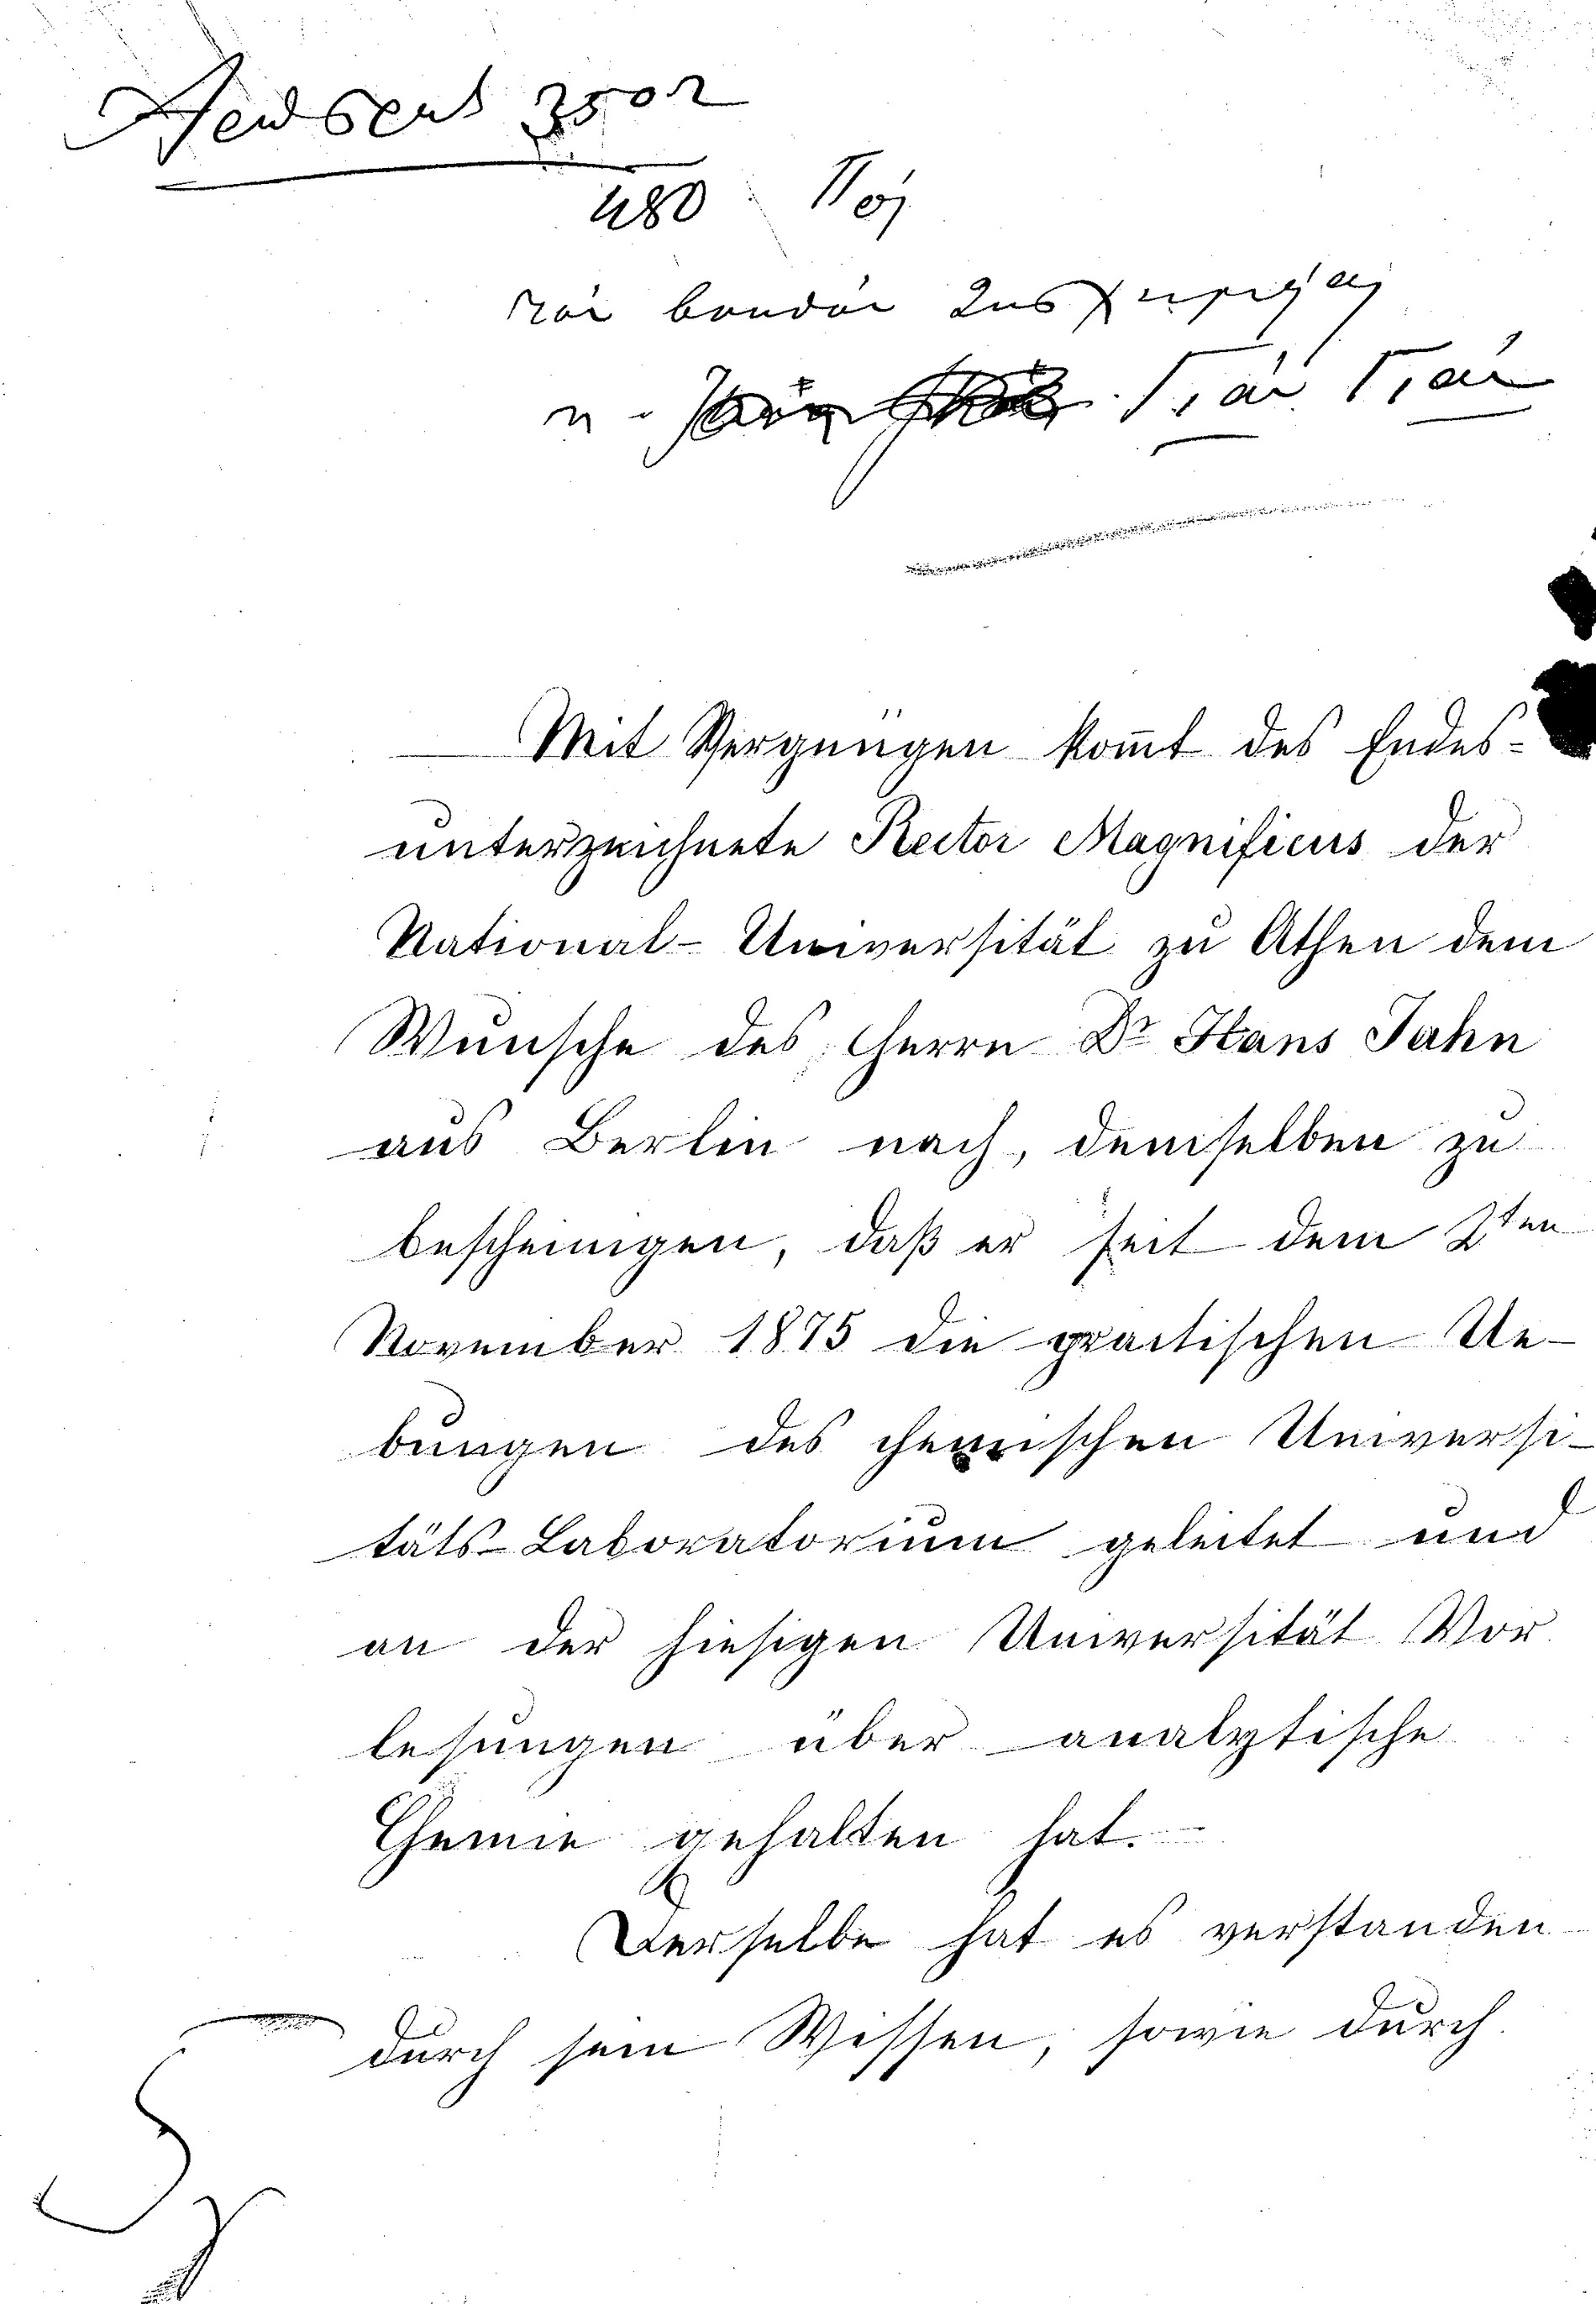 3502
480 Πρ
Mit Vergnügen kom̅t des Endes-
unterzeichnete Rector Magnificus der
National-Universität zu Athen dem
Wunsche des Herrn Dr Hans Jahn
aus Berlin nach, demselben zu
bescheinigen, daß er seit dem 2ten
November 1875 die practischen Ue-
bungen des chemischen Universi-
täts-Laboratorium geleitet und
an der hiesigen Universität Vor
lesungen über analytische
Chemie gehalten hat.
Derselbe hat es verstanden
durch sein Wissen, sowie durch